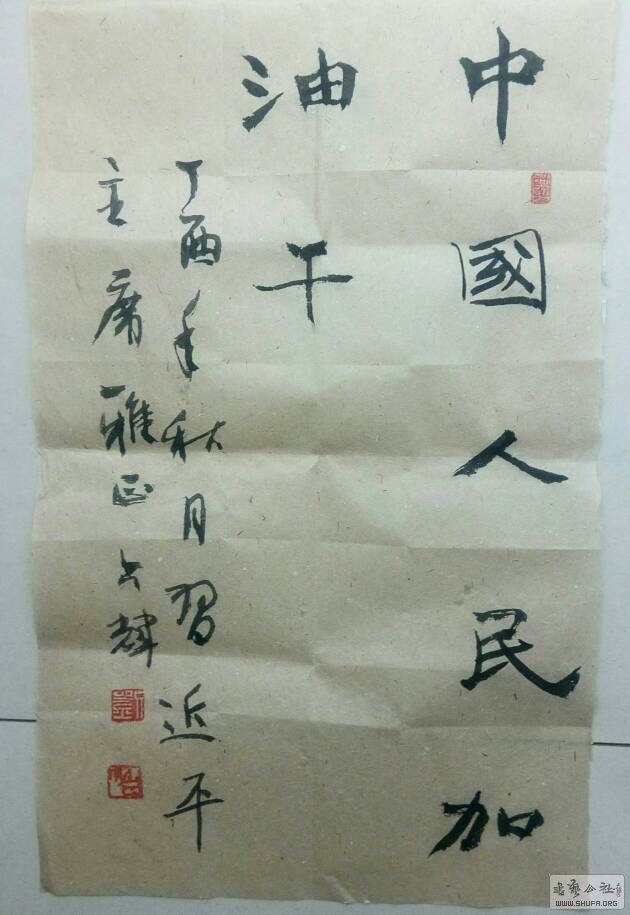 中國人民加
油干
丁酉年秋月習近平
主席雅正 輝
書藝公社
WWW.SHUFA.ORG